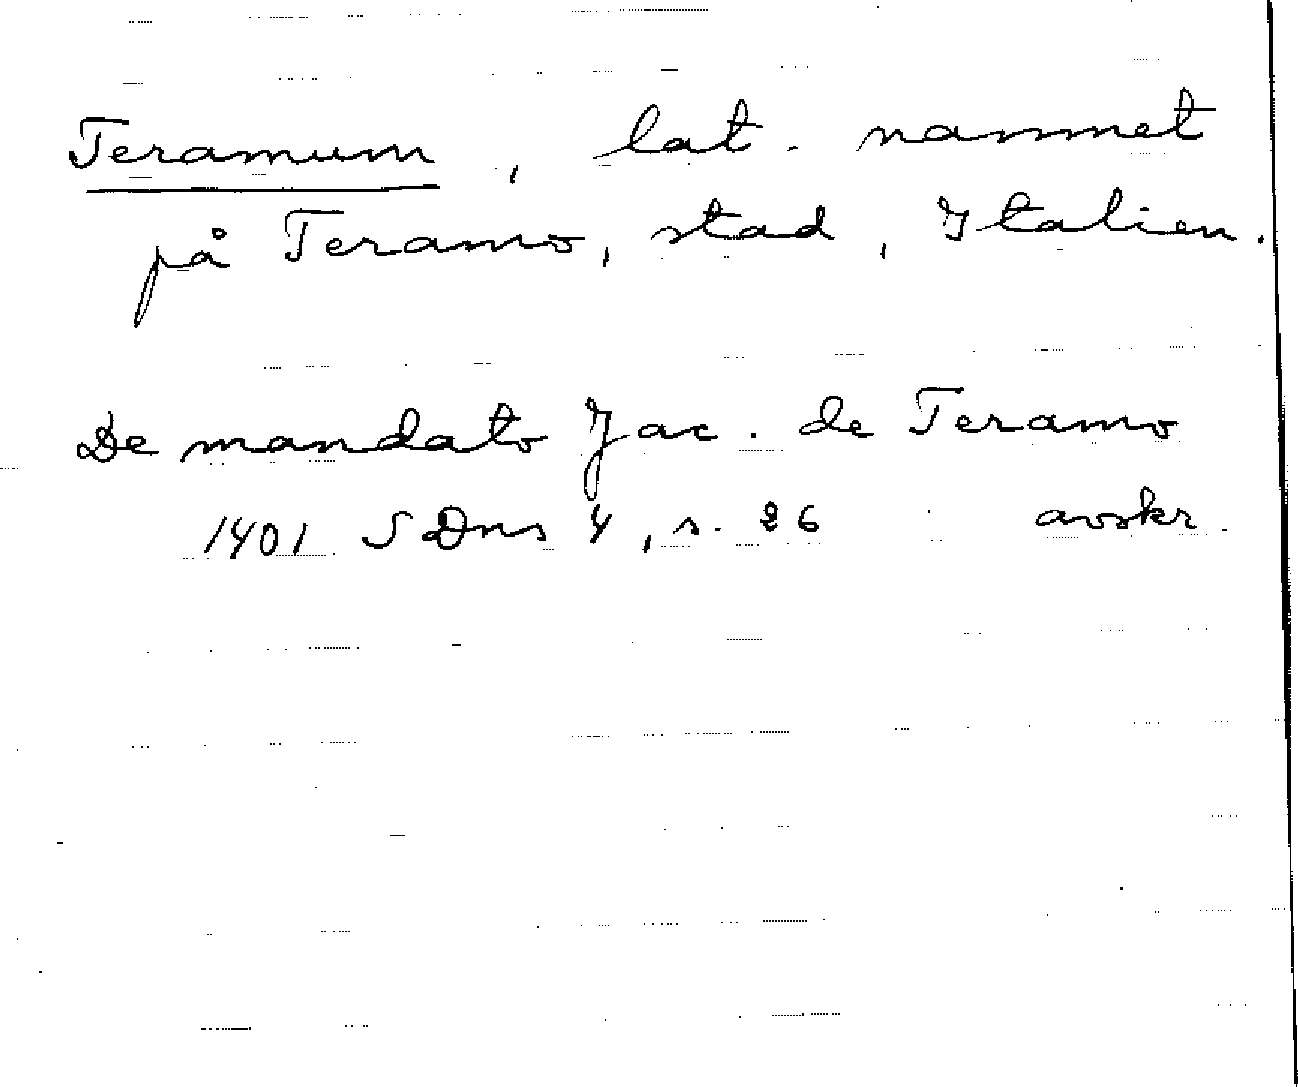 Teramum, lat. namnet
på Teramo, stad, Italien.
De mandato Jac. de Teramo
1401 SDns 4, s. 26 avskr.